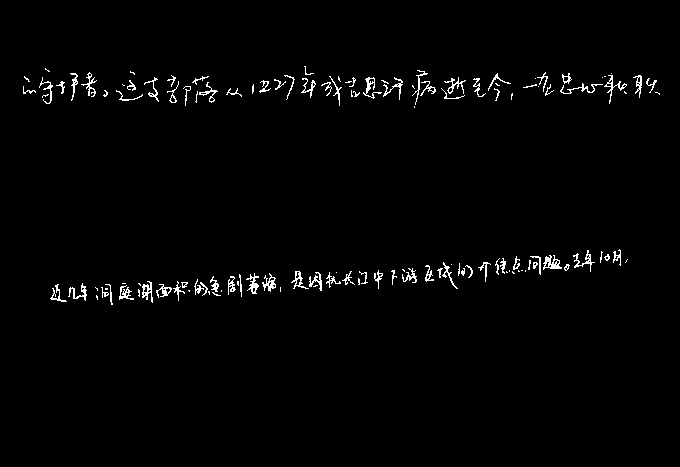 守护者。这支部落从1227年成吉思汗病逝至今，一直忠心耿耿
近几年洞庭湖面积的急剧萎缩，是困扰长江中下游区域的个焦点问题。去年10月，